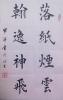 落紙煙雲
翰逸神飛